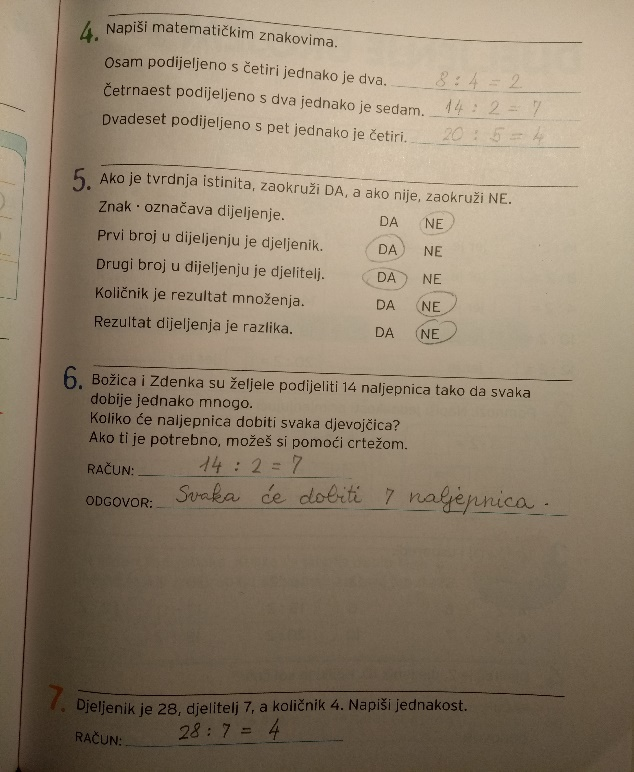 4. Napiši matematičkim znakovima.
Osam podijeljeno s četiri jednako je dva. 8 : 4 = 2
Četrnaest podijeljeno s dva jednako je sedam. 14 : 2 = 7
Dvadeset podijeljeno s pet jednako je četiri. 20 : 5 = 4
5. Ako je tvrdnja istinita, zaokruži DA, a ako nije, zaokruži NE.
Znak · označava dijeljenje. DA NE
Prvi broj u dijeljenju je djeljenik. DA NE
Drugi broj u dijeljenju je djelitelj. DA NE
Količnik je rezultat množenja. DA NE
Rezultat dijeljenja je razlika. DA NE
6. Božica i Zdenka su željele podijeliti 14 naljepnica tako da svaka
dobije jednako mnogo.
Koliko će naljepnica dobiti svaka djevojčica?
Ako ti je potrebno, možeš si pomoći crtežom.
RAČUN: 14 : 2 = 7
ODGOVOR: Svaka će dobiti 7 naljepnica.
7. Djeljenik je 28, djelitelj 7, a količnik 4. Napiši jednakost.
RAČUN: 28 : 7 = 4